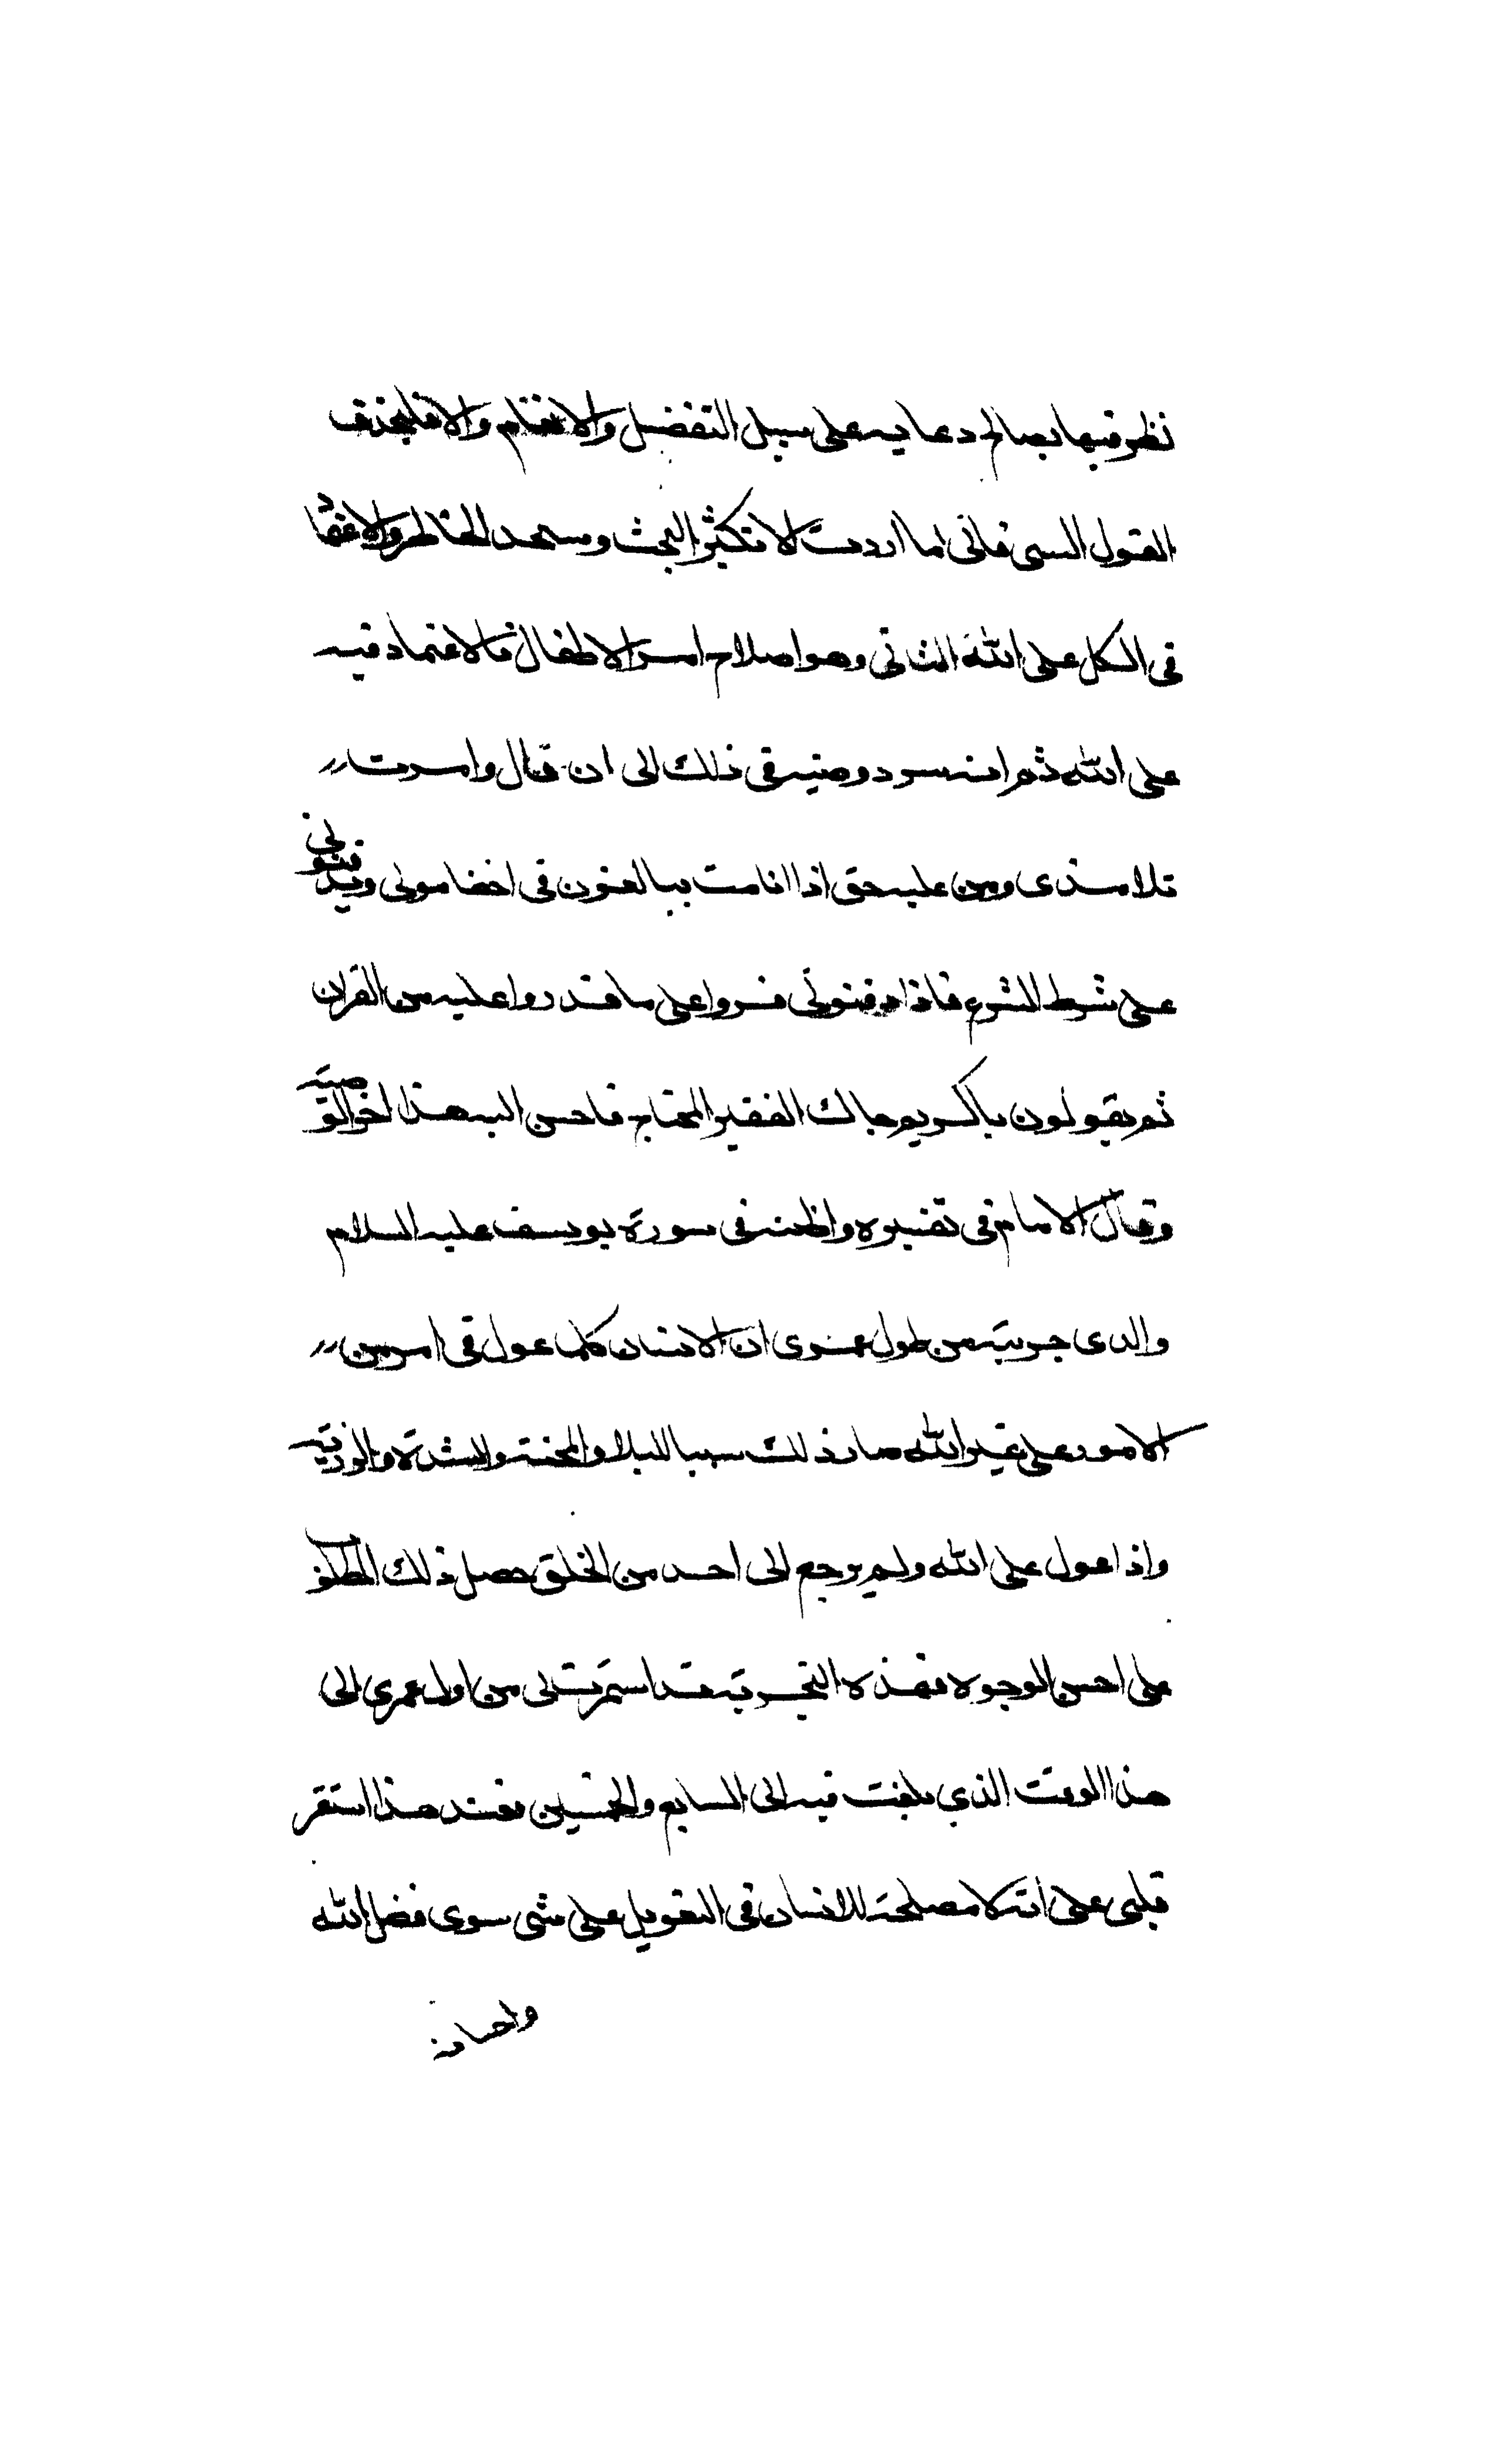 نظر فيها بصالح دعايه على سبيل التفضل والانعام والا فليحذف
القول السى فانى اما اردت الا تكثير البحث وسحد الخاطر والاعتماد
فى الكل على الله الثانى وهو اصلاح امر الاطفال فالاعتماد فيه
على الله ثم انه سرد وصيته فى ذلك الى ان قال وامرت
تلامذى ومن عليه حق اذا انا مت يبالغون فى اخفا موتى ويدفنونى
على شرط الشرع فاذا دفنونى قروا على ما قدروا عليه من القران
ثم يقولون ياكريم جاك الفقير المحتاج فاحسن اليه هذا اخر الوصية
وقال الامام فى تفسيره واظنه فى سورة يوسف عليه السلام
والدى جربته من طول عمرى ان الانسان كلما عول فى امر من
الامور على غير الله صار ذلك سببا للبلا والمحنة والشدة والرزية
واذا عول على الله ولم يرجع الى احد من الخلق حصل ذلك المطلوب
على احسن الوجوه فهذه التجربة قد استمرت لى من اول عمري الى
هذا الوقت الذي بلغت فيه الى السابع والخمسين فعند هذا استقر
قلبى على انه لا مصلحة للانسان فى التعويل على شى سوى فضل الله
واحسانه